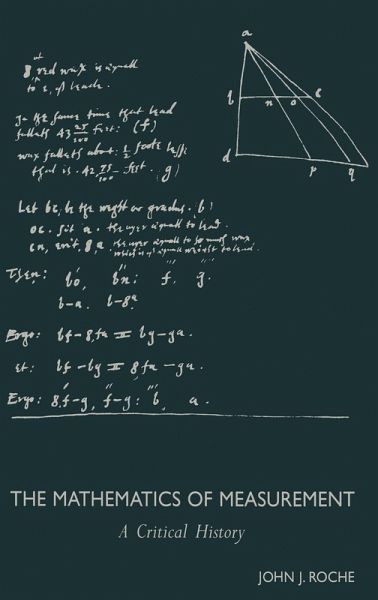 a
8 red wax is equall
to 1, of leade.
In the same time that lead
falleth 43 25/100 feet: (f)
wax falleth about: 1/2 foote lesse
that is. 42 75/100 feet. (g)
b n o c
d p q
Let bc, be the weight or gradus. (b)
oc. sit a. the ayer equall to lead.
cn, erit. 8,a. the ayer equall to so much wax
which is of equall weight to lead.
Then: bo, bn: f. g.
b-a. b-8a
Ergo: bf-8fa = bg-ga.
et: bf-bg = 8fa-ga.
Ergo: 8f-g, f-g: b, a.
THE MATHEMATICS OF MEASUREMENT
A Critical History
JOHN J. ROCHE